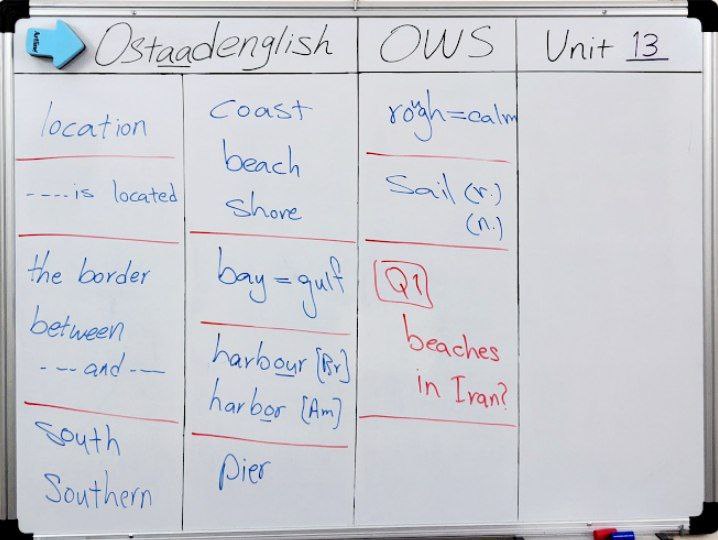 Artline
Ostaadenglish
OWS
Unit 13
location
----is located
the border
between
---and---
south
Southern
coast
beach
shore
bay = gulf
harbour [Br]
harbor [Am]
pier
rough=calm
Sail (v.)
(n.)
Q1
beaches
in Iran?